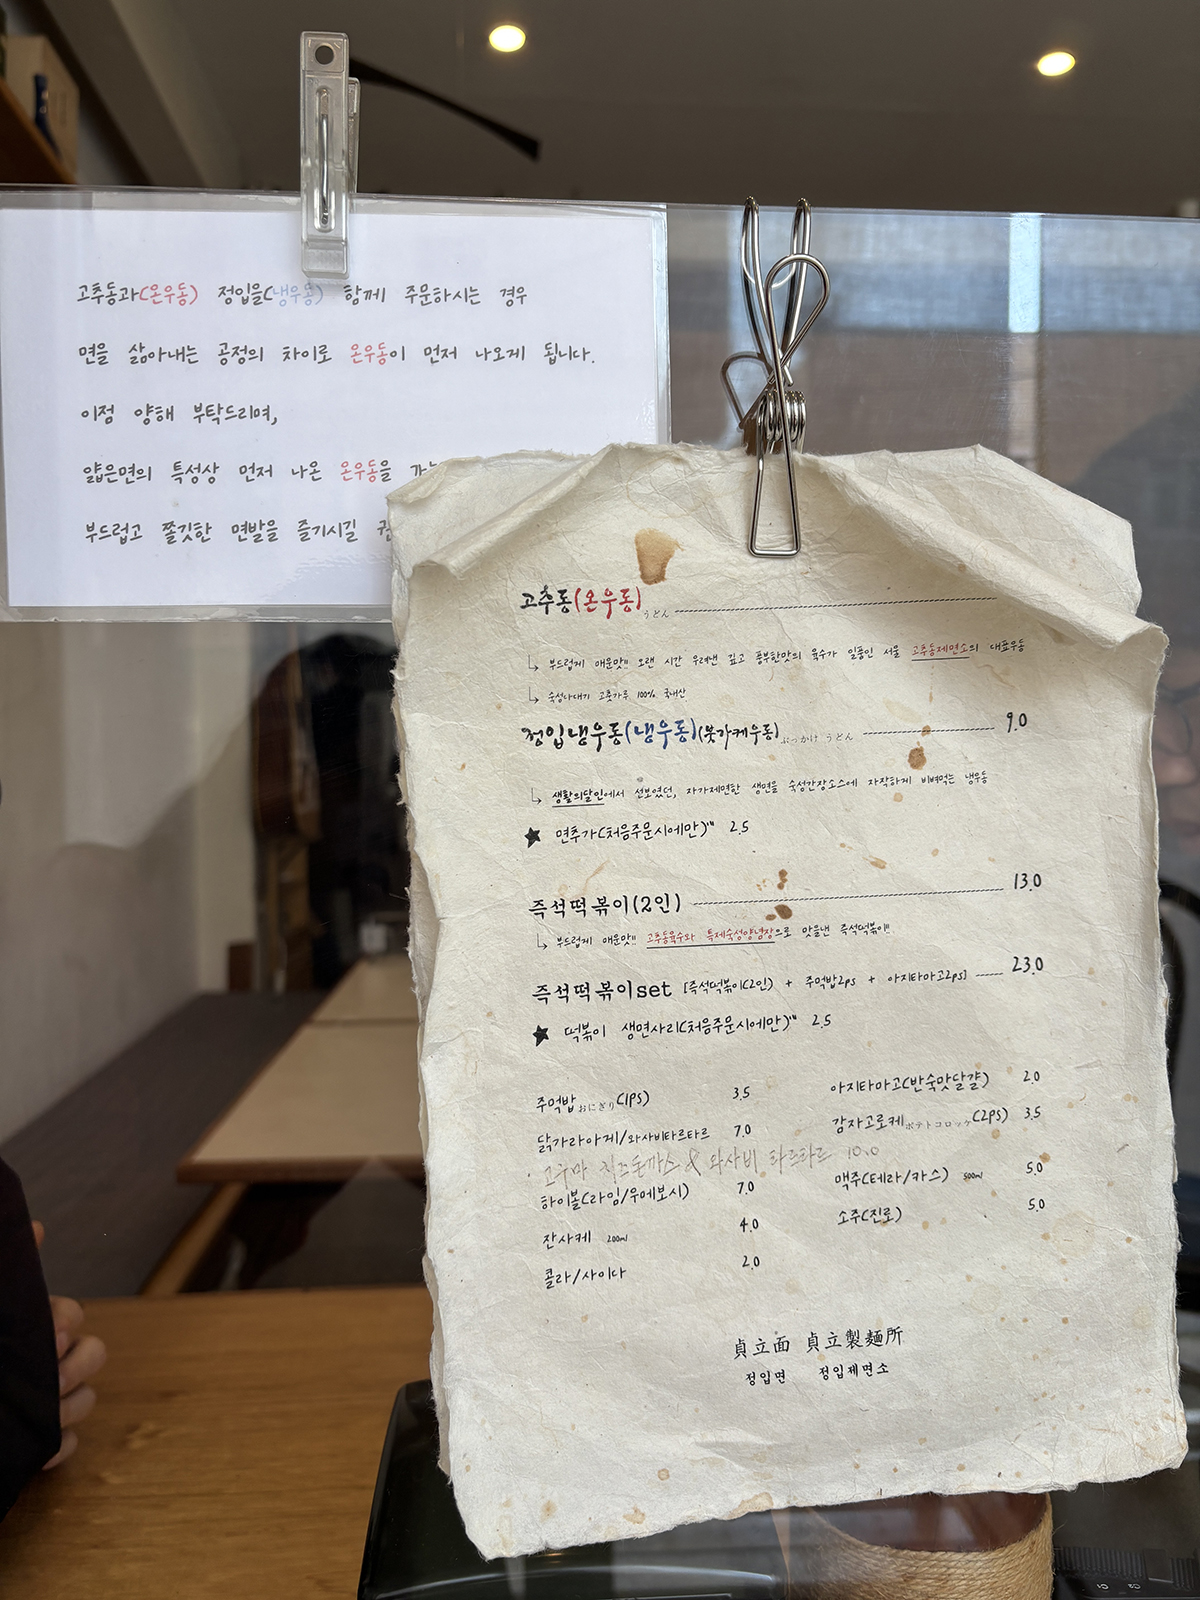 고추동과(온우동) 정입을(냉우동) 함께 주문하시는 경우
면을 삶아내는 공정의 차이로 온우동이 먼저 나오게 됩니다.
이점 양해 부탁드리며,
얇은면의 특성상 먼저 나온 온우동을
부드럽고 쫄깃한 면발을 즐기시길
고추동(온우동) うどん
부드럽게 매운맛!! 오랜 시간 우려낸 깊고 풍부한맛의 육수가 일품인 서울 고추동제면소의 대표우동
숙성다대기 고춧가루 100% 국내산
정입냉우동(냉우동)(붓가케우동) ぶっかけ うどん 9.0
생활의달인에서 선보였던, 자가제면한 생면을 숙성간장소스에 자작하게 비벼먹는 냉우동
★ 면추가(처음주문시에만)''' 2.5
즉석떡볶이(2인) 13.0
부드럽게 매운맛!! 고추동육수와 특제숙성양념장으로 맛을낸 즉석떡볶이!!
즉석떡볶이set [즉석떡볶이(2인) + 주먹밥2ps + 아지타마고2ps] 23.0
★ 떡볶이 생면사리(처음주문시에만)''' 2.5
주먹밥おにぎり(1ps) 3.5
아지타마고(반숙맛달걀) 2.0
닭가라아게/와사비타르타르 7.0
감자고로케ポテトコロッケ(2ps) 3.5
· 고구마 치즈돈까스 & 와사비 타르타르 10.0
하이볼(라임/우메보시) 7.0
맥주(테라/카스) 500ml 5.0
잔사케 200ml 4.0
소주(진로) 5.0
콜라/사이다 2.0
貞立面 貞立製麵所
정입면 정입제면소